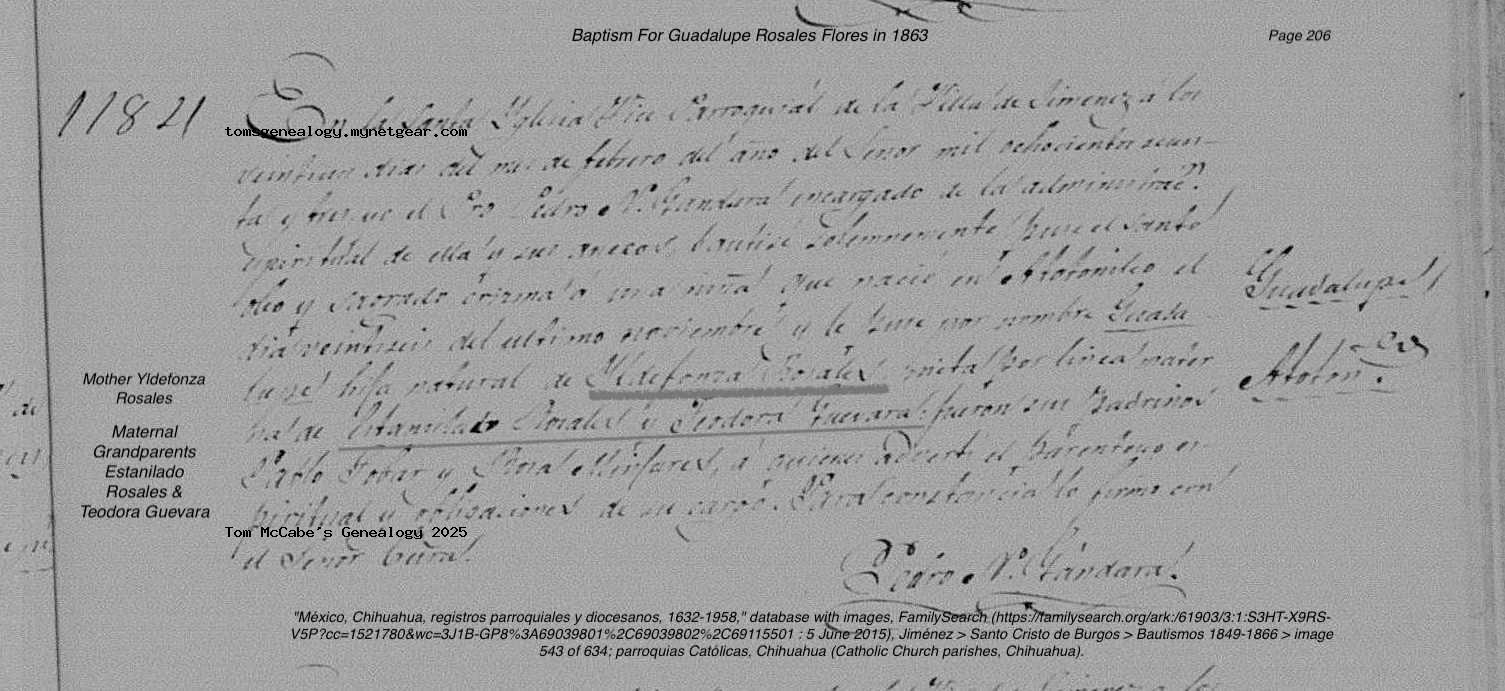 Baptism For Guadalupe Rosales Flores in 1863
Page 206
1184
En la Santa Yglecia Vice Parroquial de la Villa de Jimenez á los
tomsgenealogy.mynetgear.com
veintiun dias del mes de febrero del año del Señor mil ochocientos secen-
ta y tres yo el Pro Pedro N. Gandara encargado de la administrac.n
espiritual de ella y sus anecsos, bautisé solemnemente puse el santo
oleo y sagrado crisma á una niña que nació en Atotonilco el
dia veintiseis del ultimo noviembre y le puse por nombre Guada
lupe hija natural de Yldefonza Rosales nieta por linea mater
na de Estanilado Rosales y Teodora Guevara: fueron sus padrinos
Pablo Tobar y Rosa Minjares, á quienes advertí el parentesco es-
piritual y obligaciones de su cargo. Para constancia lo firmo con
el Señor Cura.
Guadalupe
Atoton.co
Pedro N. Gándara.
Mother Yldefonza
Rosales
Maternal
Grandparents
Estanilado
Rosales &
Teodora Guevara
Tom McCabe's Genealogy 2025
"México, Chihuahua, registros parroquiales y diocesanos, 1632-1958," database with images, FamilySearch (https://familysearch.org/ark:/61903/3:1:S3HT-X9RS-
V5P?cc=1521780&wc=3J1B-GP8%3A69039801%2C69039802%2C69115501 : 5 June 2015), Jiménez > Santo Cristo de Burgos > Bautismos 1849-1866 > image
543 of 634; parroquias Católicas, Chihuahua (Catholic Church parishes, Chihuahua).